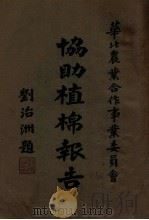 華北農業合作事業委員會
協助植棉報告
劉治洲題